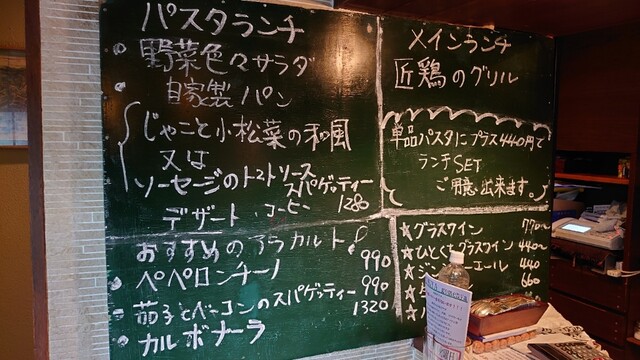 パスタランチ
野菜色々サラダ
自家製パン
じゃこと小松菜の和風
又は
ソーセージのトマトソース
スパゲッティー
デザート・コーヒー 1280
おすすめのアラカルト
ペペロンチーノ 990
茄子とベーコンのスパゲッティー 990
カルボナーラ 1320
メインランチ
匠鶏のグリル
単品パスタにプラス440円で
ランチSET
ご用意出来ます。
☆グラスワイン 770
☆ひとくちグラスワイン 440
☆ジンジャーエール 440
660